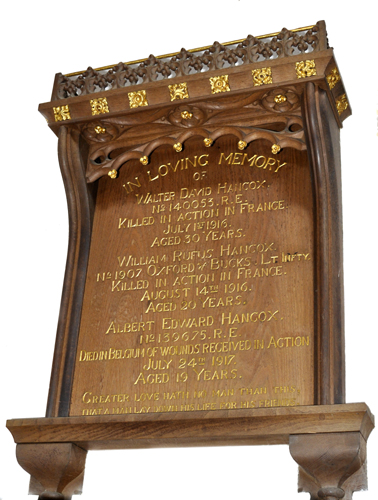 IN LOVING MEMORY
OF
WALTER DAVID HANCOX.
No 140053. R.E.
KILLED IN ACTION IN FRANCE.
JULY 1ST 1916.
AGED 30 YEARS.
WILLIAM RUFUS HANCOX.
No 1907. OXFORD & BUCKS. LT INFTY.
KILLED IN ACTION IN FRANCE.
AUGUST 14TH 1916.
AGED 20 YEARS.
ALBERT EDWARD HANCOX.
No 139675. R.E.
DIED IN BELGIUM OF WOUNDS RECEIVED IN ACTION
JULY 24TH 1917.
AGED 19 YEARS.
GREATER LOVE HATH NO MAN THAN THIS
THAT A MAN LAY DOWN HIS LIFE FOR HIS FRIENDS